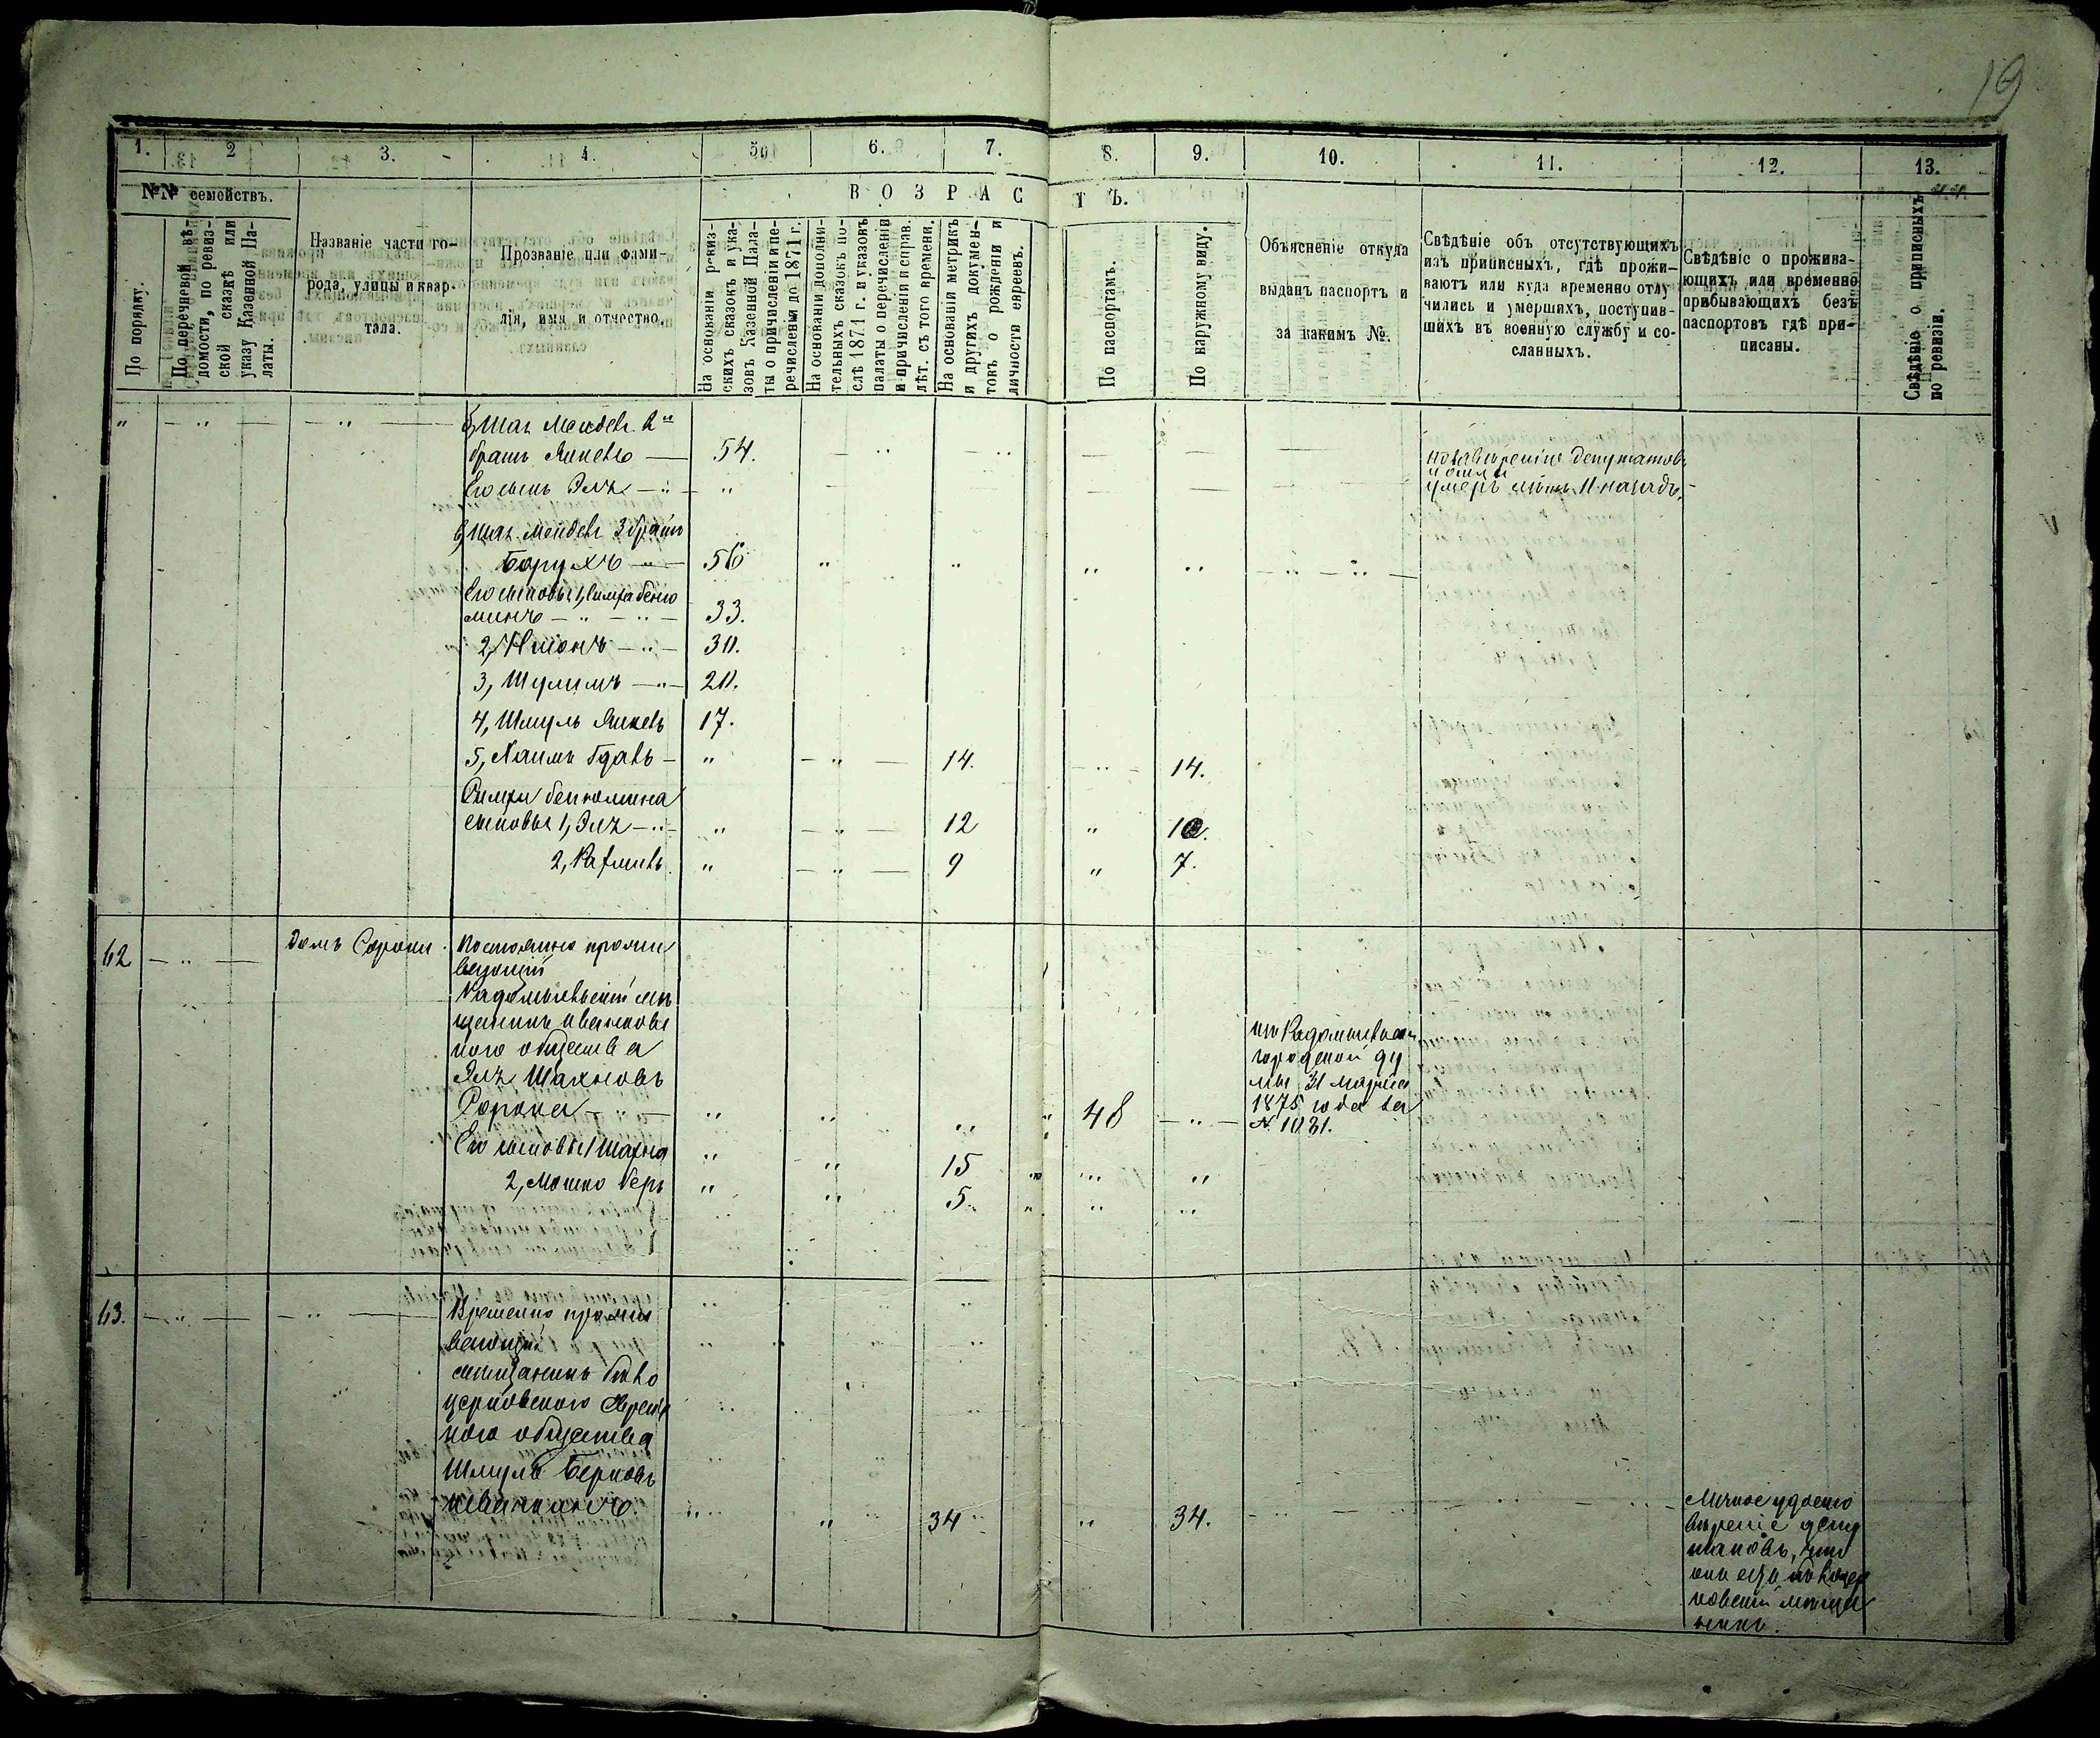 19
1. 2 3. 4. 5 6. 7. 8. 9. 10. 11. 12. 13.
№№ семействъ.
По порядку.
По перечневой вѣ-
домости, по ревиз-
ской сказкѣ или
указу Казенной Па-
латы.
Названіе части го-
рода, улицы и квар-
тала.
Прозваніе или фами-
лія, имя и отчество.
ВОЗРАСТЪ.
На основаніи ревиз-
скихъ сказокъ и ука-
зовъ Казенной Пала-
ты о причисленіи и пе-
речисленіи до 1871 г.
На основаніи дополни-
тельныхъ сказокъ по-
слѣ 1871 г. и указовъ
палаты о перечисленіи
и причисленіи и справ.
лѣт. съ того времени.
На основаніи метрикъ
и другихъ докумен-
товъ о рожденіи и
личности евреевъ.
По паспортамъ.
По наружному виду.
Объясненіе откуда
выданъ паспортъ и
за какимъ №.
Свѣдѣніе объ отсутствующихъ
изъ приписныхъ, гдѣ прожи-
ваютъ или куда временно отлу
чились и умершихъ, поступив-
шихъ въ военную службу и со-
сланныхъ.
Свѣдѣніе о прожива-
ющихъ или временно
прибывающихъ безъ
паспортовъ гдѣ при-
писаны.
Свѣдѣніе о приписныхъ
по ревизіи.
Мендел. 2й
братъ Янкель — 54.
Его сынъ Элѣ — " — "
депутатовъ
умеръ лѣтъ 11 назадъ.
Мендел. 3 братъ
Борухъ — 56 " " " "
Его сыновья 1, Симха Беню
минъ — 33.
2, — 30.
3, Шулимъ — 20.
4, Шмуль Янкель 17.
5, Хаимъ — " — 14. 14.
Симхи Беньюмина
сыновья 1, Элѣ — " — 12 " 10.
2, " — 9 " 7.
62 — " — Домъ Сороки. Постоянно прожи
вающій
Радомысльскій мѣ
щанинъ
ного общества
Элѣ Шахновъ
Сорока — " " " 48 — " —
изъ Радомысльской
городской ду
мы 31 марта
1875 года за
№ 1031.
Его сыновья 1 Шахна " " 15 " "
2, Мошко Беръ " " 5 " "
63. — " — — " — Временно прожи
вающій
мѣщанинъ Бѣло
церковского еврей
ного общества
Шмуль Берковъ
" " 34 " 34. — " —
Личное удосто
вѣреніе депу
татовъ, что
онъ есть Бѣлоцер
ковскій мѣща
нинъ.